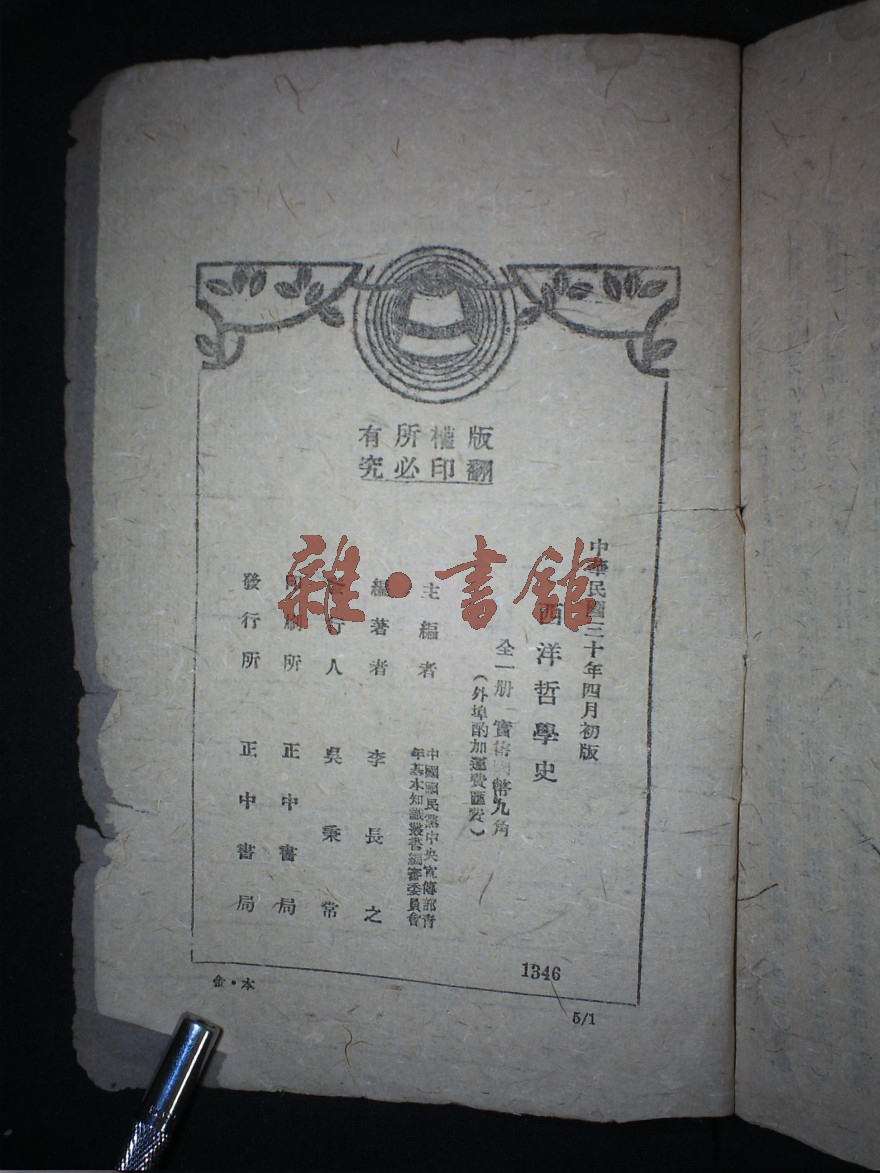 版權所有
翻印必究
中華民國三十年四月初版
西洋哲學史
全一册 實價國幣九角
(外埠酌加運費匯費)
主編者 中國國民黨中央宣傳部青
年基本知識叢書編審委員會
編著者 李長之
發行人 吳秉常
印刷所 正中書局
發行所 正中書局
雜·書館
1346
金·本
5/1